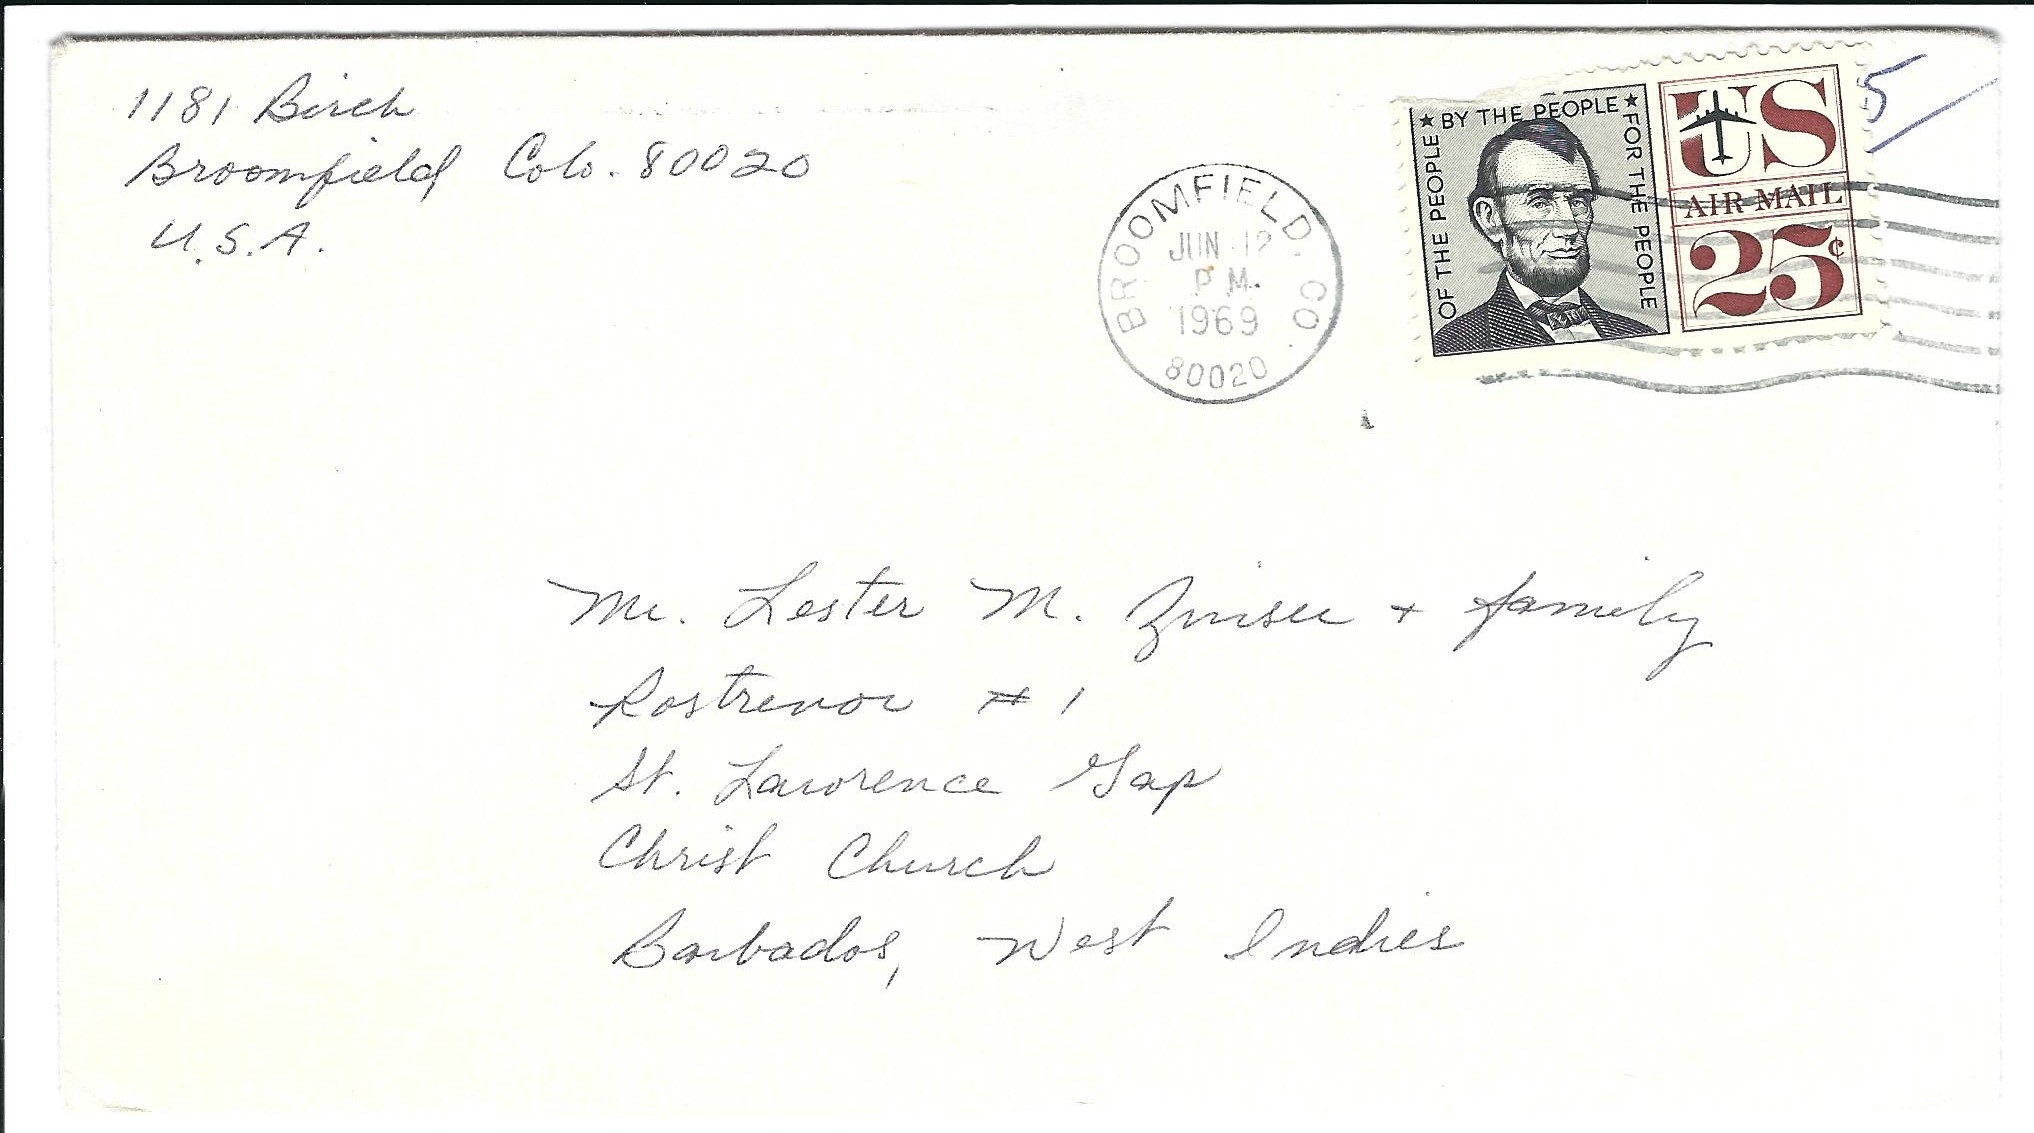 1181 Birch
Broomfield Colo. 80020
U.S.A.
BROOMFIELD, CO.
JUN 12
P.M.
1969
80020
OF THE PEOPLE ★ BY THE PEOPLE ★ FOR THE PEOPLE
US
AIR MAIL
25¢
5
Mr. Lester M. Zinser + family
Rostrevor #1
St. Lawrence Gap
Christ Church
Barbados, West Indies